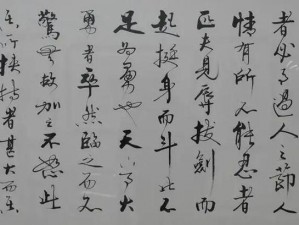 者必有過人之節人
情有所不能忍者
匹夫見辱拔劍而
起挺身而斗此不
足為勇也天下有大
勇者卒然臨之而不
驚無故加之不怒此
其所挾持者甚大而其